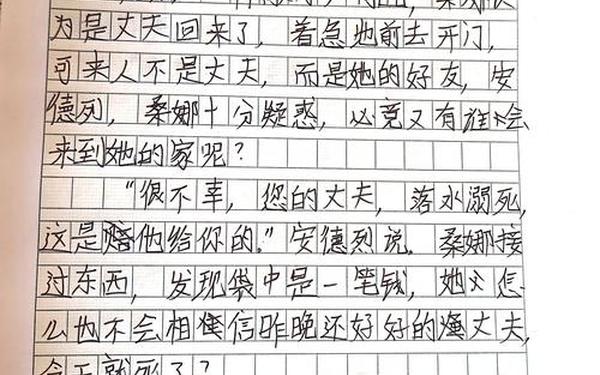 为是丈夫回来了，着急地前去开门，
可来人不是丈夫，而是她的好友，安
德列，桑娜十分疑惑，必竟又有谁会
来到她的家呢？
“很不幸，您的丈夫，落水溺死，
这是赔他给你的。”安德烈说。桑娜接
过东西，发现袋中是一笔钱，她怎
么也不会相信昨晚还好好的渔丈夫，
今天就死了？